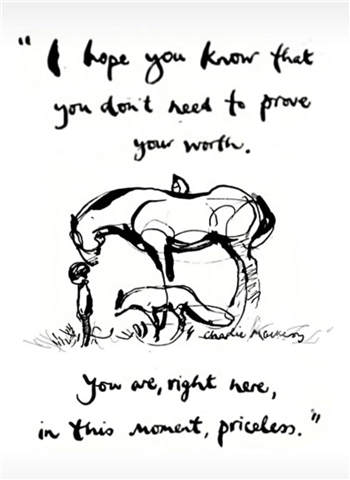 " I hope you know that
you don't need to prove
your worth.
Charlie Mackesy
You are, right here,
in this moment, priceless. "